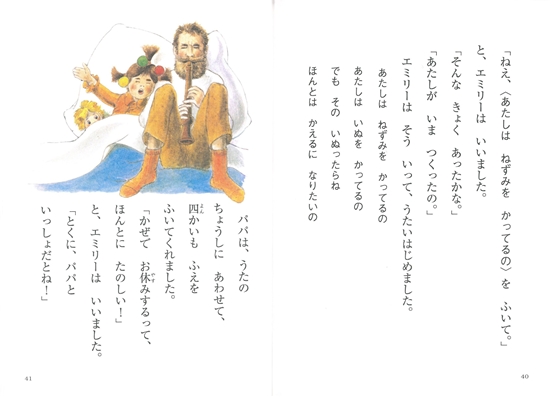 「ねえ、〈あたしは　ねずみを　かってるの〉を　ふいて。」
と、エミリーは　いいました。
「そんな　きょく　あったかな。」
「あたしが　いま　つくったの。」
エミリーは　そう　いって、うたいはじめました。
あたしは　ねずみを　かってるの
あたしは　いぬを　かってるの
でも　その　いぬったらね
ほんとは　かえるに　なりたいの
40
パパは、うたの
ちょうしに　あわせて、
四かいも　ふえを
よん
ふいてくれました。
「かぜで　お休みするって、
やす
ほんとに　たのしい！」
と、エミリーは　いいました。
「とくに、パパと
いっしょだとね！」
41